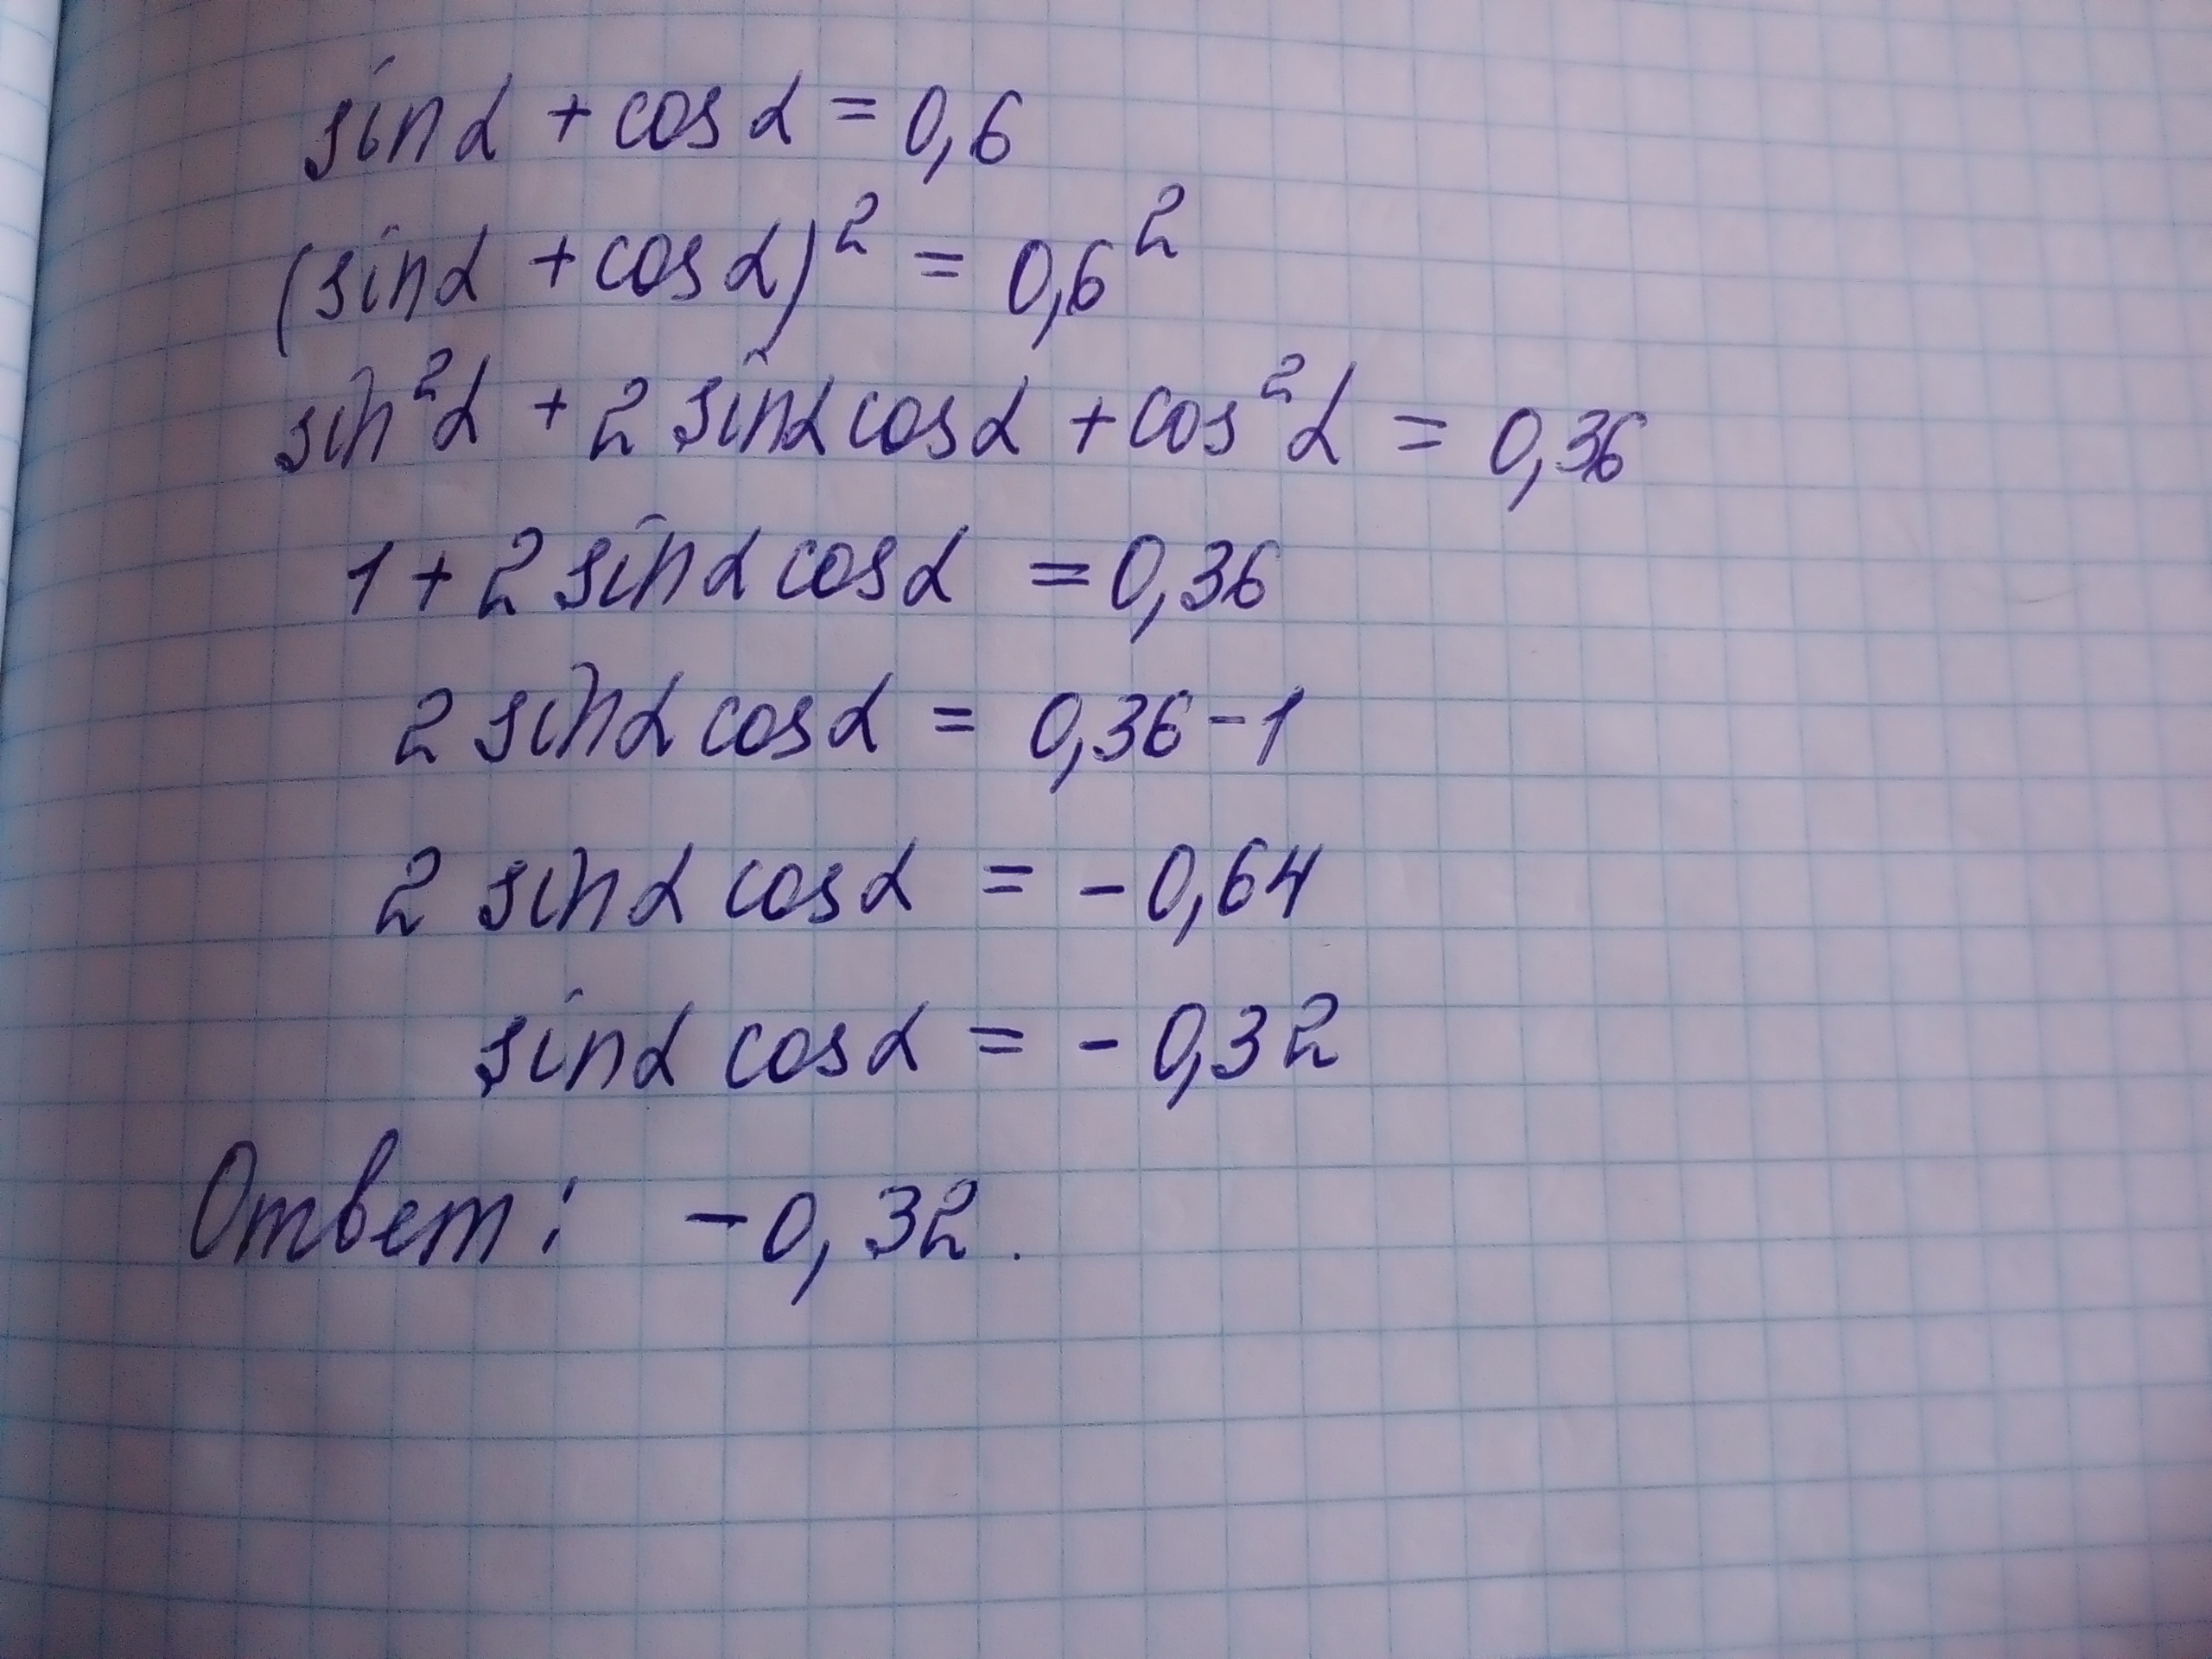 sinα + cosα = 0,6
(sinα + cosα)² = 0,6²
sin²α + 2 sinα cosα + cos²α = 0,36
1 + 2 sinα cosα = 0,36
2 sinα cosα = 0,36 - 1
2 sinα cosα = - 0,64
sinα cosα = - 0,32
Ответ: - 0,32.